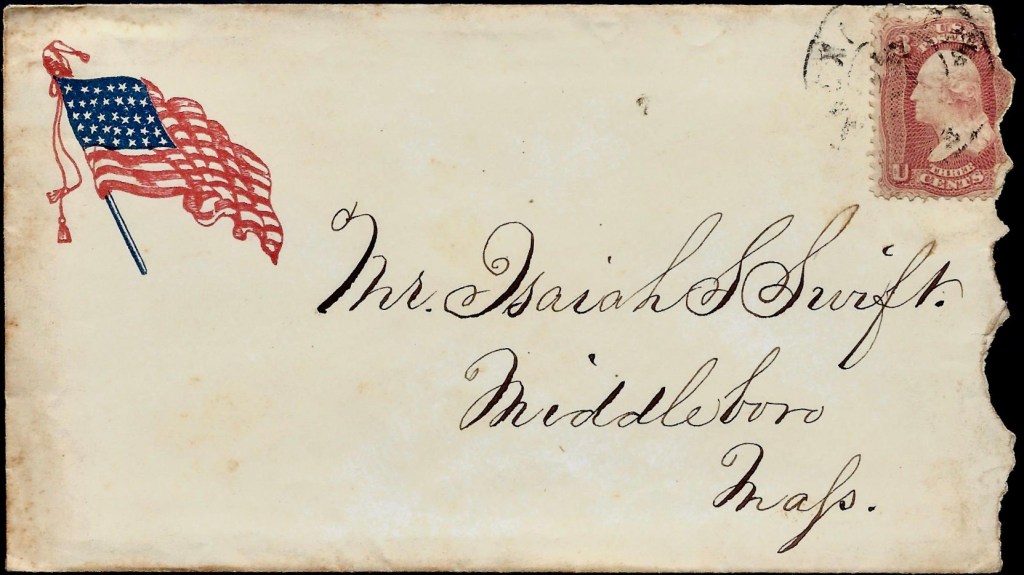 U
THREE
CENTS
Mr. Isaiah S Swift.
Middleboro
Maſs.